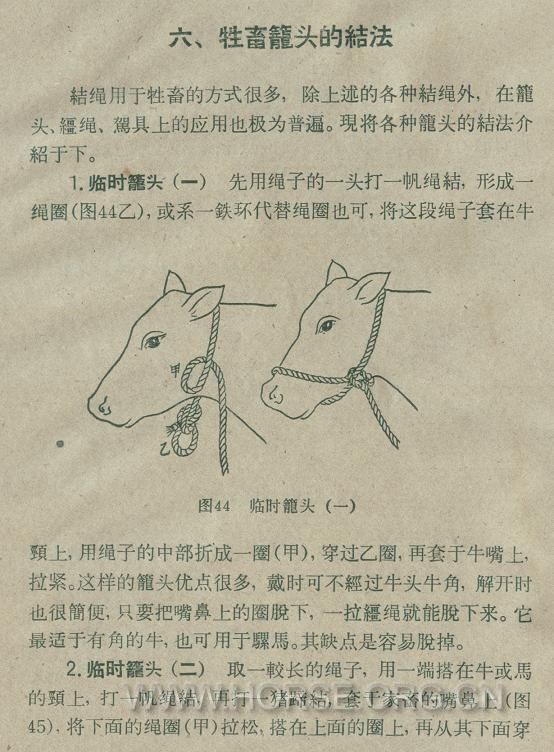 六、牲畜籠头的結法
結绳用于牲畜的方式很多，除上述的各种結绳外，在籠
头、繮绳、駕具上的应用也极为普遍。現将各种籠头的結法介
紹于下。
1.临时籠头（一） 先用绳子的一头打一帆绳結，形成一
绳圈（图44乙），或系一鉄环代替绳圈也可，将这段绳子套在牛
甲
乙
图44 临时籠头（一）
頸上，用绳子的中部折成一圈（甲），穿过乙圈，再套于牛嘴上，
拉紧。这样的籠头优点很多，戴时可不經过牛头牛角，解开时
也很簡便，只要把嘴鼻上的圈脫下，一拉繮绳就能脫下来。它
最适于有角的牛，也可用于騾馬。其缺点是容易脫掉。
2.临时籠头（二） 取一較长的绳子，用一端搭在牛或馬
的頸上，打一帆绳結，再打一猪蹄結，套于家畜的嘴鼻上（图
45），将下面的绳圈（甲）拉松，搭在上面的圈上，再从其下面穿
WWW.HORSE.ORG.CN